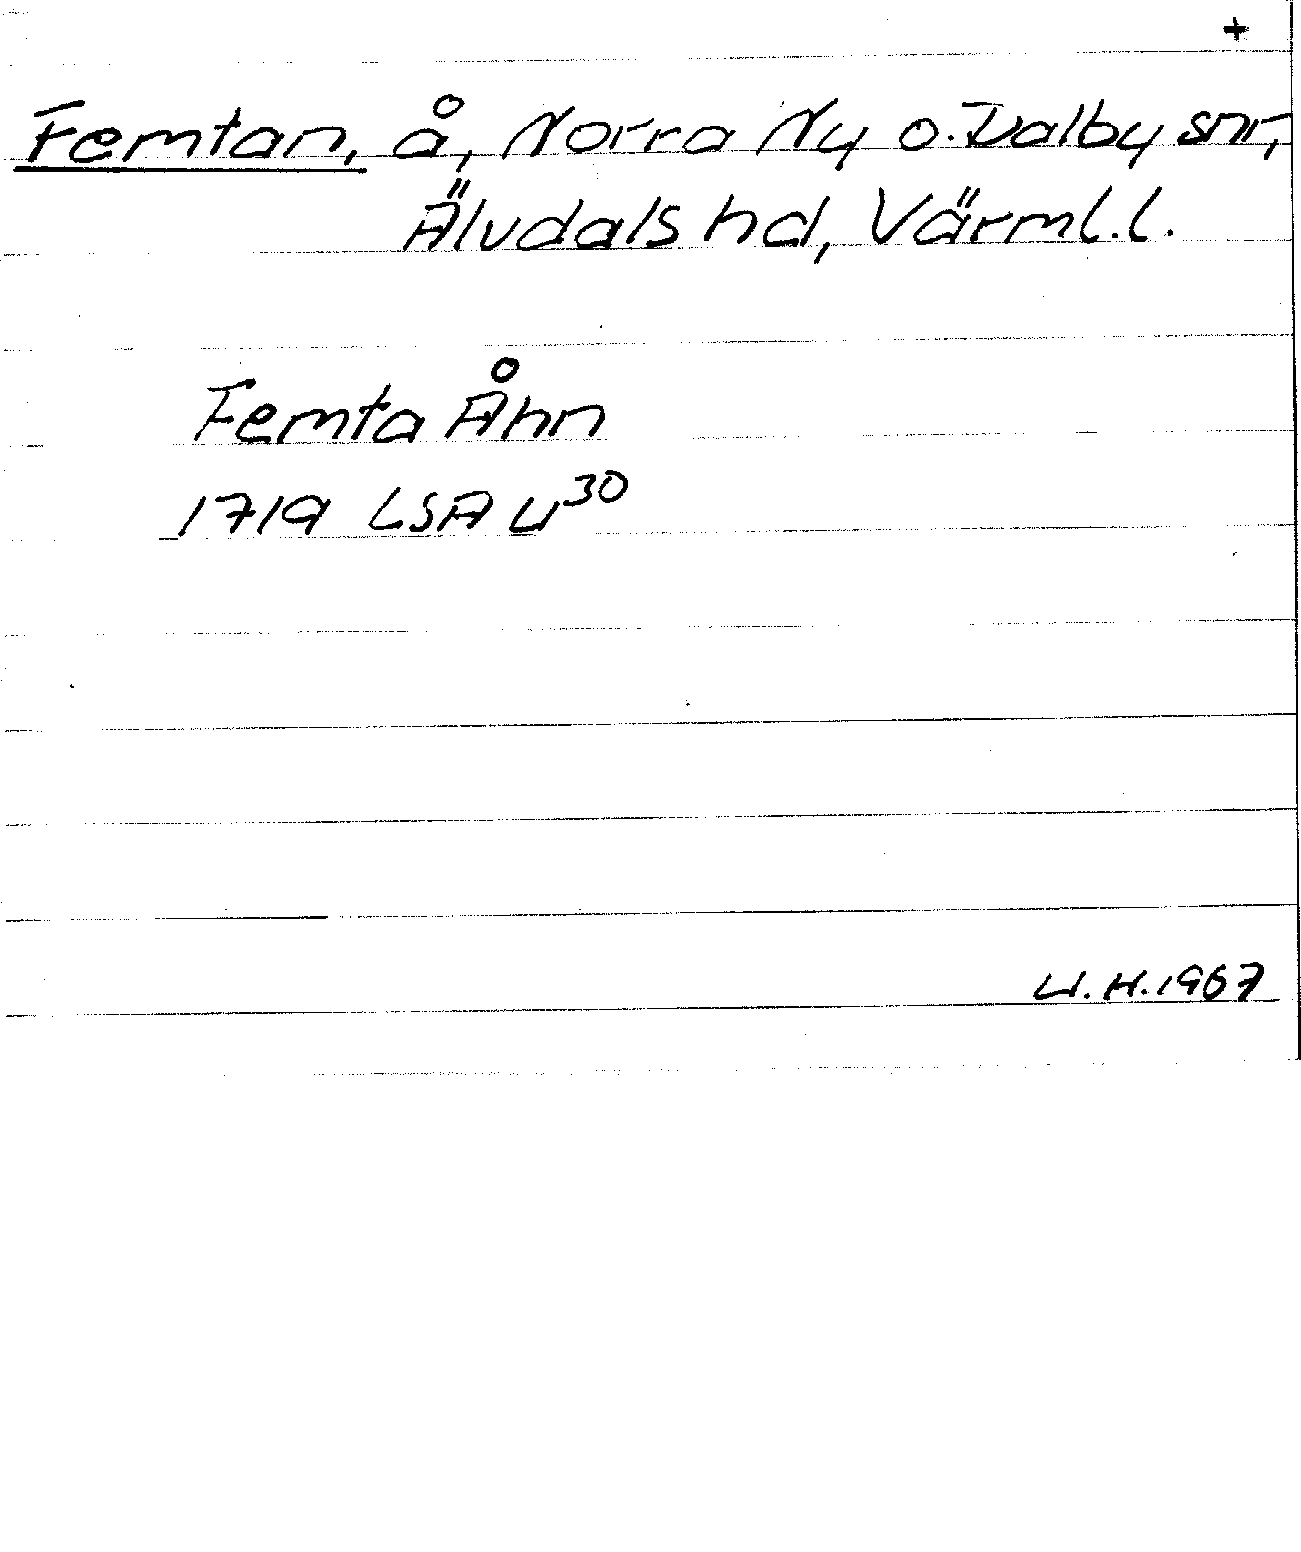 +
Femtan, å, Norra Ny o. Dalby snr,
Älvdals hd, Värml. l.
Femta Åhn
1719 LSA U30
U. H. 1967